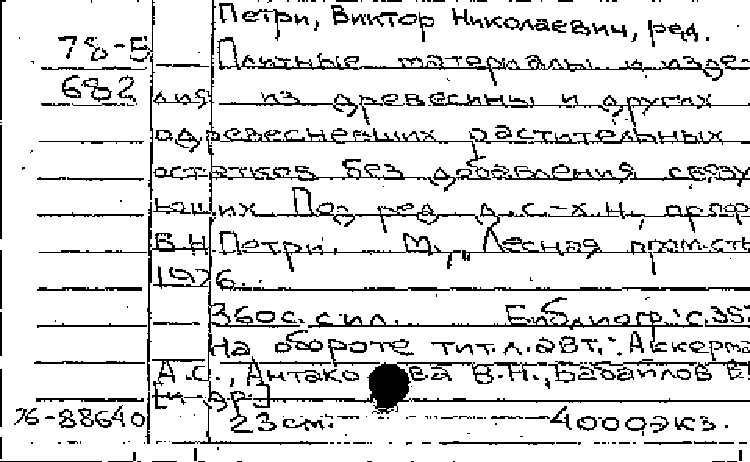 Петри, Виктор Николаевич, ред.
78-5 Плитные материалы и изде-
682 лия из древесины и других
одревесневших растительных
остатков без добавления связу
ющих Под ред. д.с.-х.н., проф
В.Н. Петри. М., „Лесная пром-сть
1976.
360с. с ил. Библиогр.: с.35
На обороте тит.л. авт.: Аккерма
А.С., Антако ва В.Н., Бабайлов В.
[и др.]
76-88640 23 см. 4000экз.